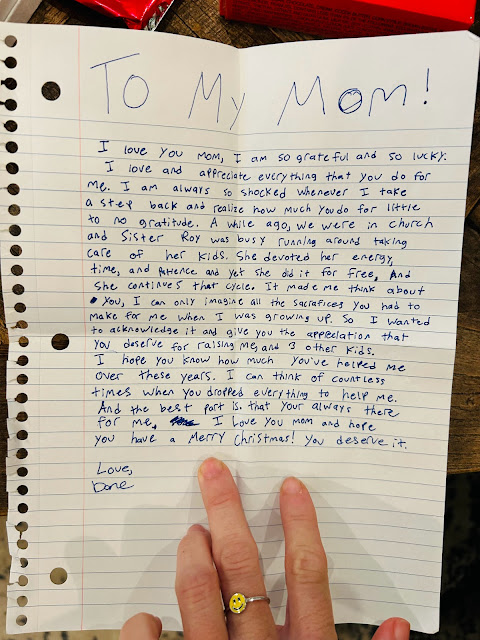 To My Mom!
I love you mom, I am so grateful and so lucky.
I love and appreciate everything that you do for
me. I am always so shocked whenever I take
a step back and realize how much you do for little
to no gratitude. A while ago, we were in church
and Sister Roy was busy running around taking
care of her kids. She devoted her energy,
time, and patience and yet she did it for free, And
she continues that cycle. It made me think about
you, I can only imagine all the sacrafices you had to
make for me when I was growing up. So I wanted
to acknowledge it and give you the appreciation that
you deserve for raising me, and 3 other kids.
I hope you know how much you've helped me
over these years. I can think of countless
times when you dropped everything to help me.
And the best part is. that your always there
for me, I Love you mom and hope
you have a Merry Christmas! You deserve it.
Love,